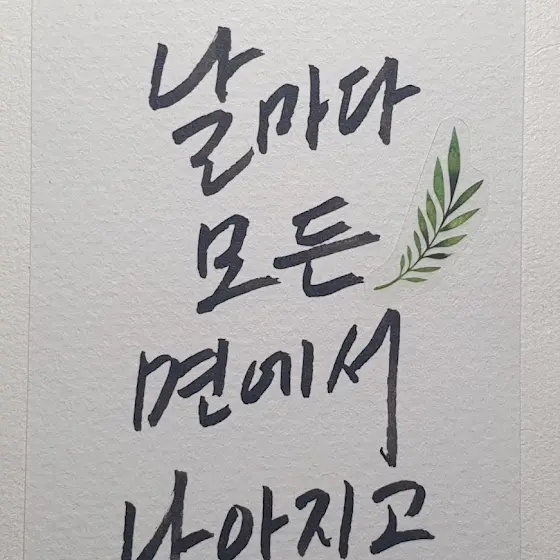 날마다
모든
면에서
나아지고